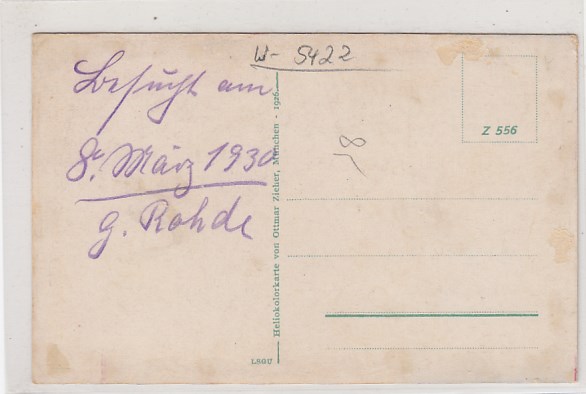 W- 5422
Besucht am
8. März 1930
g. Rohde
Z 556
8
Heliokolorkarte von Ottmar Zieher, München - 1926
LSGU